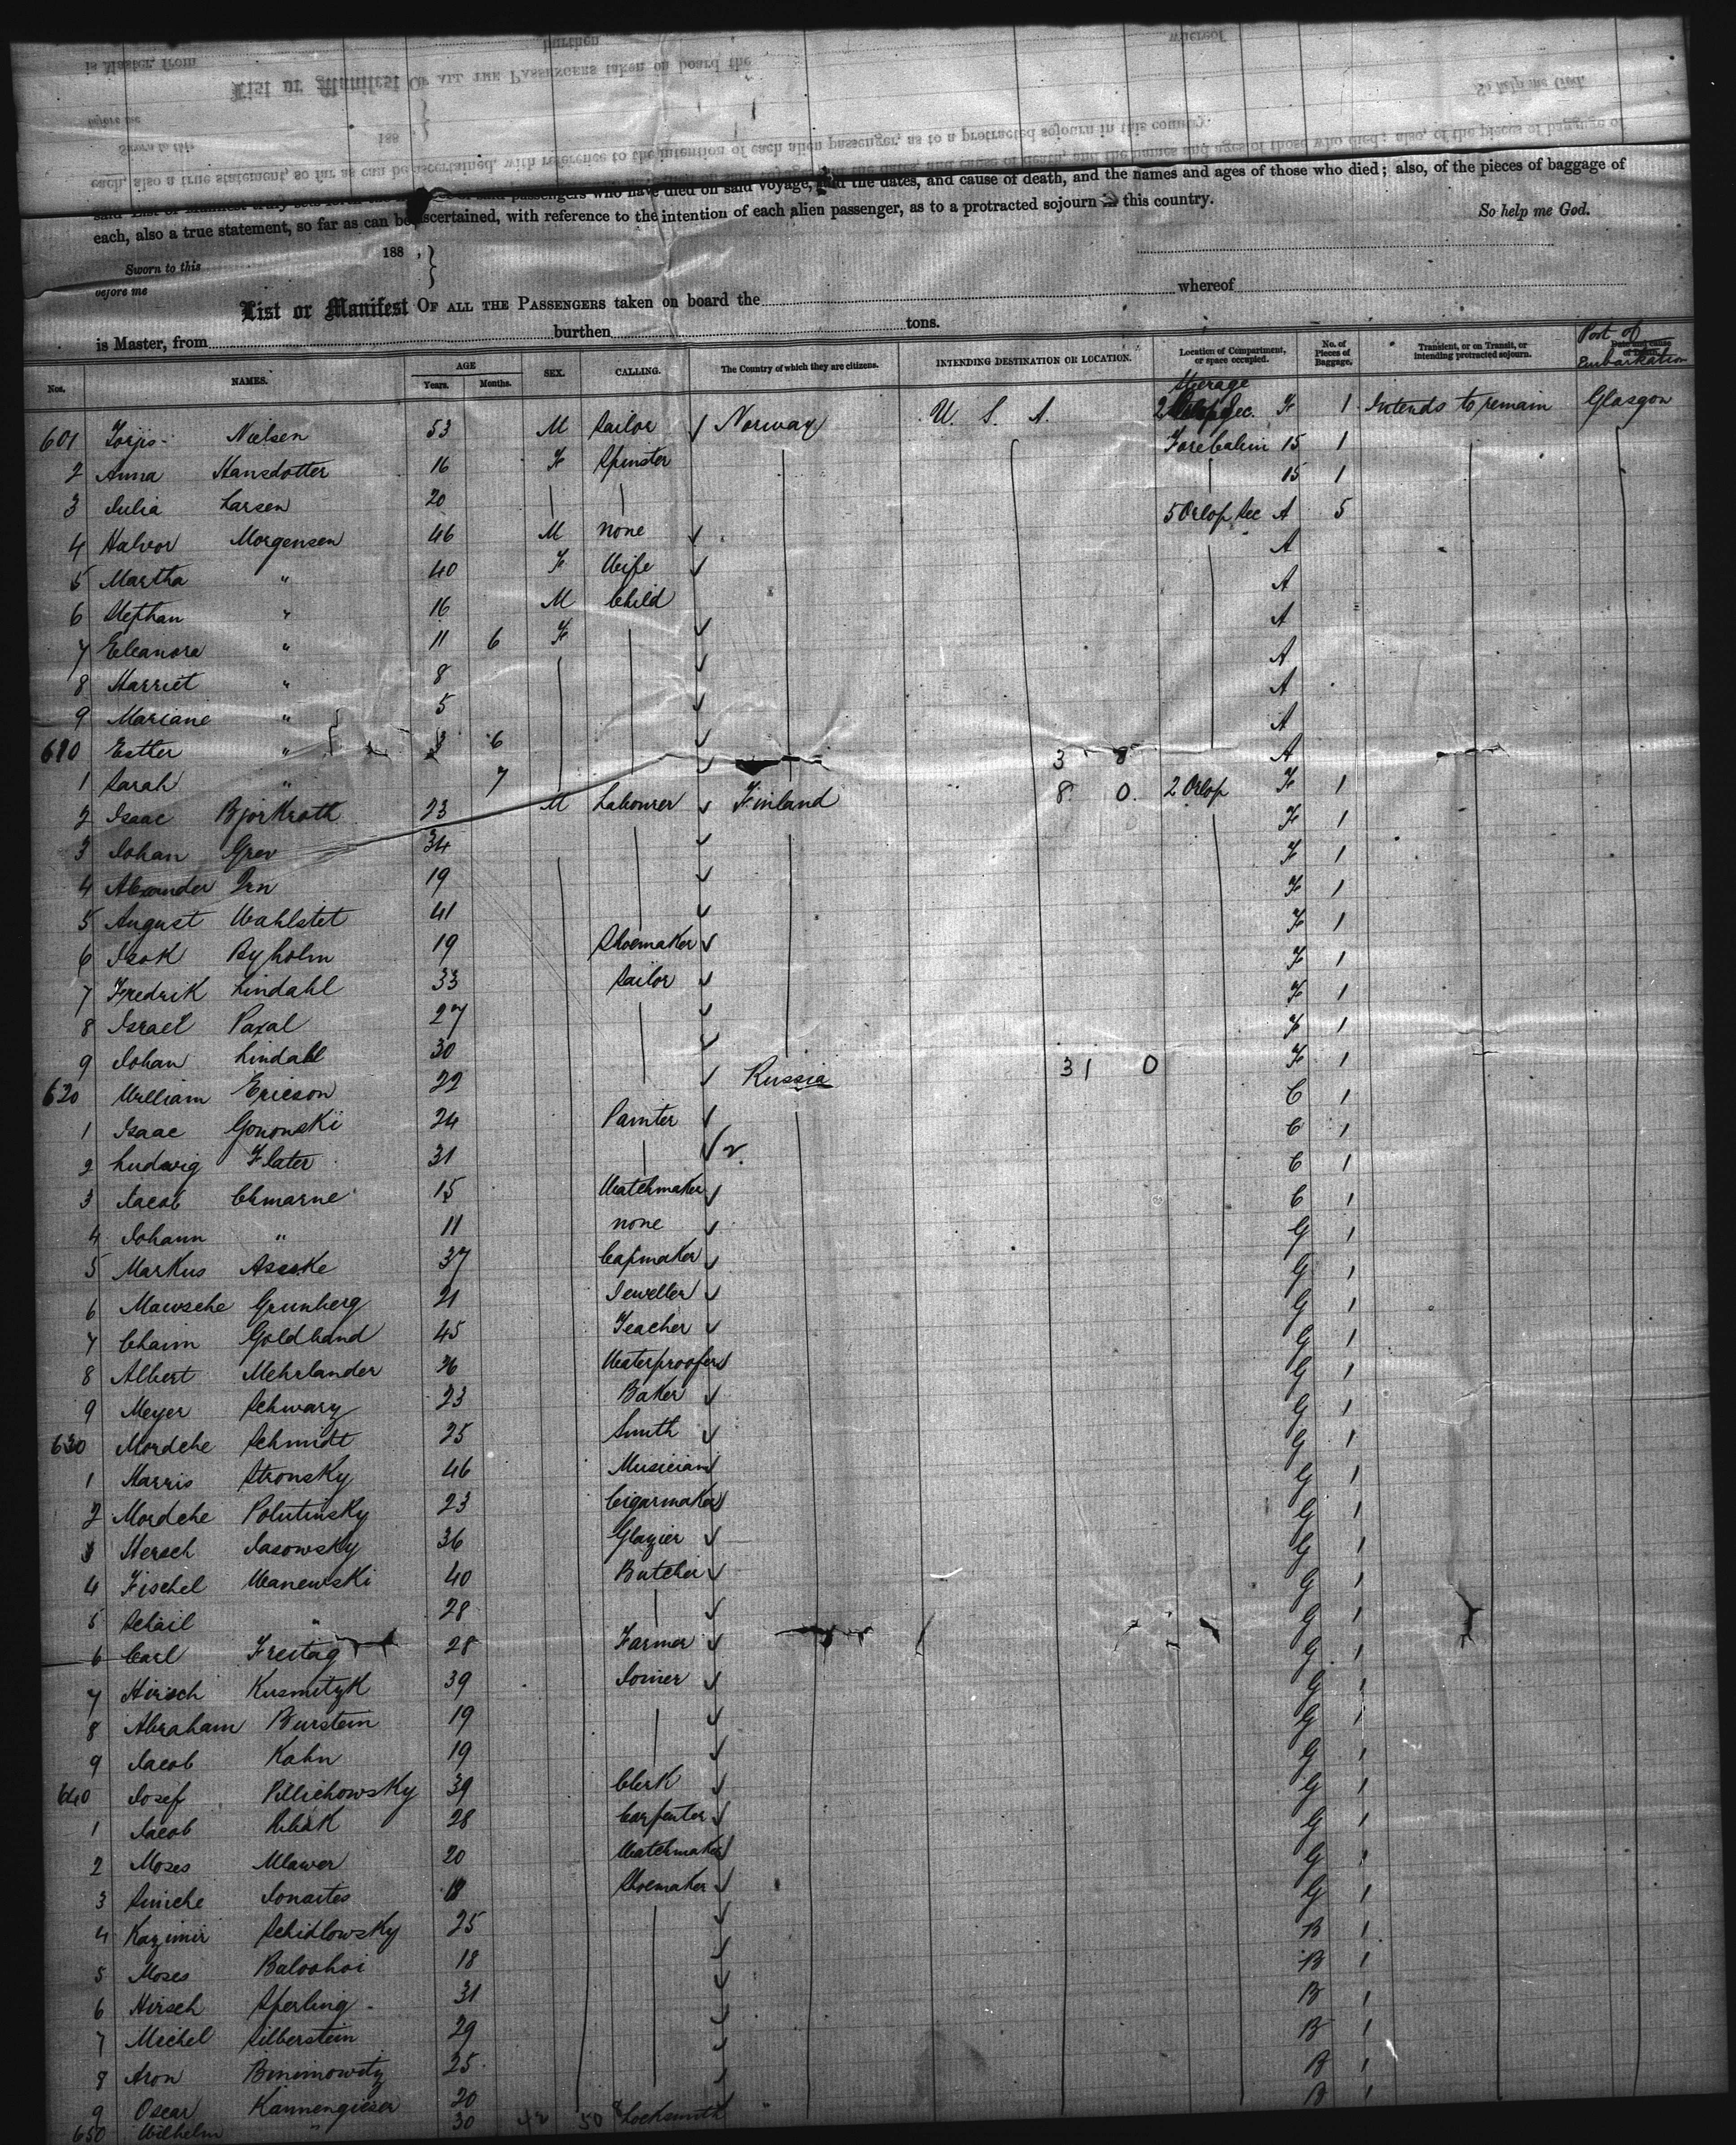 each, also a true statement, so far as can be ascertained, with reference to the intention of each alien passenger, as to a protracted sojourn in this country.
passengers who have died on said voyage, and the dates, and cause of death, and the names and ages of those who died; also, of the pieces of baggage of
each, also a true statement, so far as can be ascertained, with reference to the intention of each alien passenger, as to a protracted sojourn in this country.
So help me God.
Sworn to this 188 ,
before me
List or Manifest OF ALL THE PASSENGERS taken on board the whereof
is Master, from burthen tons.
Nos. NAMES. AGE Years. Months. SEX. CALLING. The Country of which they are citizens. INTENDING DESTINATION OR LOCATION. Location of Compartment, or space occupied. No. of Pieces of Baggage. Transient, or on Transit, or intending protracted sojourn. Port of Embarkation
Steerage
601 Torjis Nielsen 53 M Sailor Norway U. S. A. 2 Orlop Sec. F 1 Intends to remain Glasgow
2 Anna Hansdotter 16 F Spinster Forecabin 15 1
3 Julia Larsen 20 15 1
4 Halvor Morgensen 46 M none 5 Orlop Sec A 5
5 Martha " 40 F Wife A
6 Stephan " 16 M Child A
7 Eleanora " 11 6 F A
8 Harriet " 8 A
9 Mariane " 5 A
610 Esther " 3 6 A
1 Sarah " 7 3 8 A
2 Isaac Bjorkroth 23 M Labourer Finland 8 0 2 Orlop F 1
3 Johan Grev 34 F 1
4 Alexander 19 F 1
5 August Wahlstet 41 F 1
6 Isok Byholm 19 Shoemaker F 1
7 Fredrik Lindahl 33 Sailor F 1
8 Israel Paxal 27 F 1
9 Johan Lindahl 30 F 1
620 William Ericson 22 Russia 31 0 F 1
1 Isaac Gononski 24 Painter C 1
2 Ludwig Flater 31 C 1
3 Jacob Chmarne 15 Watchmaker C 1
4 Johann " 11 none C 1
5 Markus Asaske 37 Capmaker G 1
6 Mawsche Grunberg 21 Jeweller G 1
7 Chaim Goldband 45 Teacher G 1
8 Albert Mehrlander 36 Waterproofer G 1
9 Meyer Schwarz 23 Baker G 1
630 Mordche Schmidt 25 Smith G 1
1 Harris Stronsky 46 Musician G 1
2 Mordche Polutinsky 23 Cigarmaker G 1
3 Hersch Jasowsky 36 Glazier G 1
4 Fischel Wanewski 40 Butcher G 1
5 Schail " 28 G 1
6 Carl Freitag 28 Farmer G 1
7 Hirsch Kusmitzk 39 Joiner G 1
8 Abraham Burstein 19 G 1
9 Jacob Kahn 19 G 1
640 Josef Pillichowsky 39 Clerk G 1
1 Jacob 28 Carpenter G 1
2 Moses Mlawer 20 Watchmaker G 1
3 Simche Jonaites 18 Shoemaker G 1
4 Kazimir Schidlowsky 25 B 1
5 Moses Baloohoi 18 B 1
6 Hirsch Sperling 31 B 1
7 Michel Silberstein 29 B 1
8 Aron Binimowitz 25 B 1
9 Oscar Kannengieser 20 B 1
650 Wilhelm " 30 42 50 Locksmith